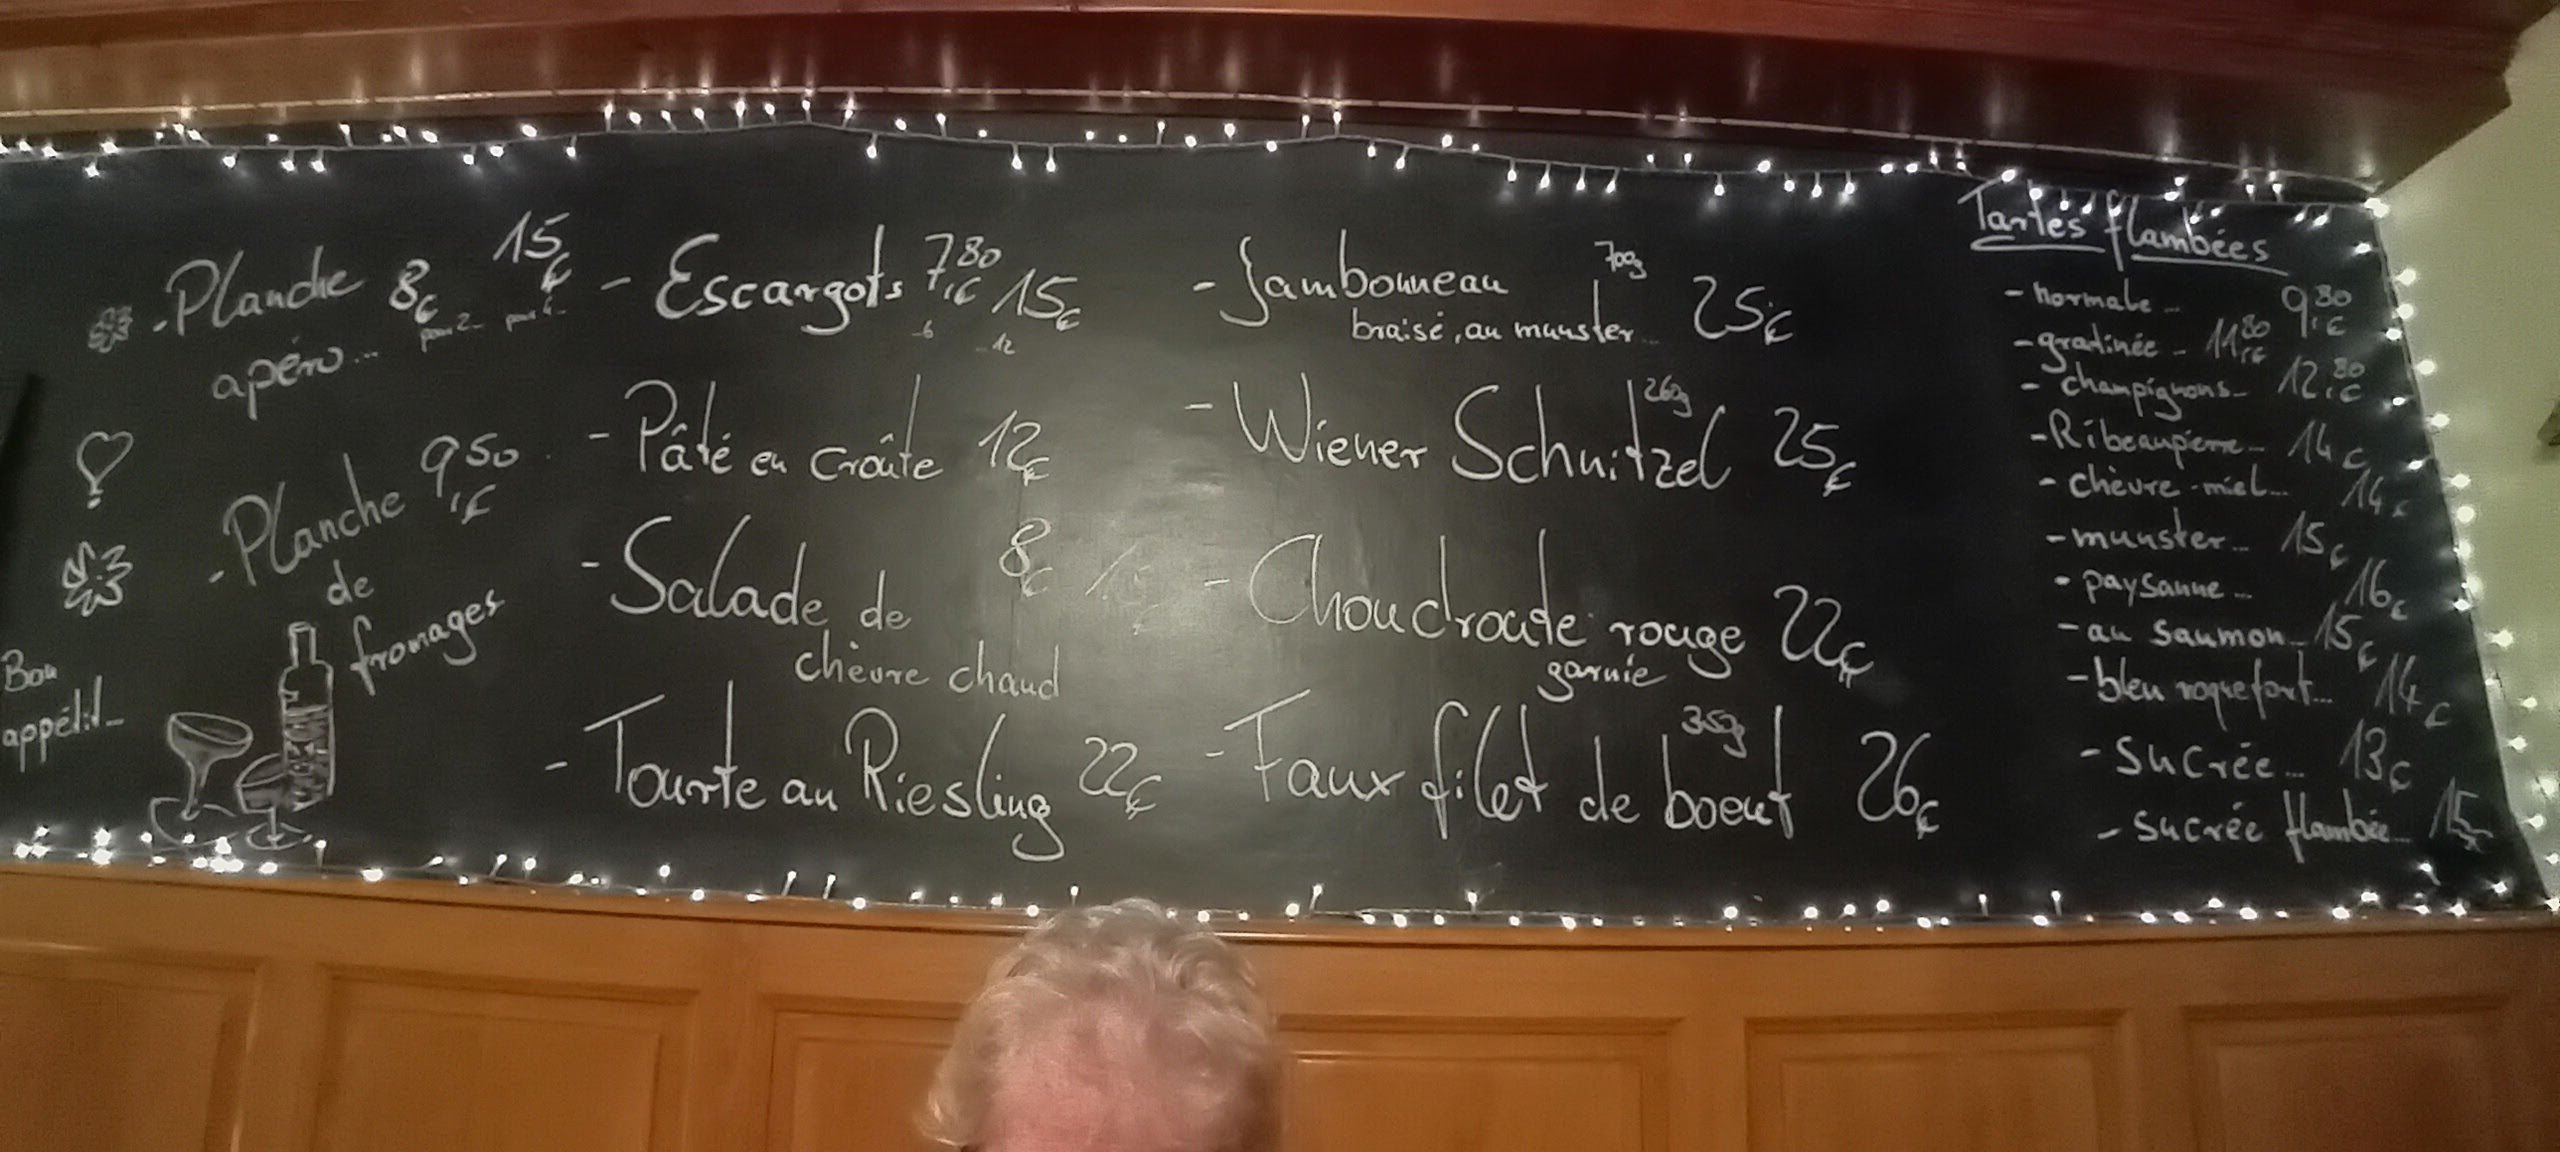 - Planche 8€ 15€
apéro... pour 2... pour 4...
- Planche 9,50€
de
fromages
Bon
appétit...
- Escargots 7,80€ 15€
6 12
- Pâté en croûte 12€
- Salade de 8€
chèvre chaud
- Tourte au Riesling 22€
- Jambonneau 700g 25€
braisé, au munster...
- Wiener Schnitzel 260g 25€
- Choucroute rouge 22€
garnie
- Faux filet de boeuf 350g 26€
Tartes flambées
- normale... 9,80€
- gratinée... 11,80€
- champignons... 12,80€
- Ribeaupierre... 14€
- chèvre-miel... 14€
- munster... 15€
- paysanne... 16€
- au saumon... 15€
- bleu roquefort... 14€
- sucrée... 13€
- sucrée flambée... 15€